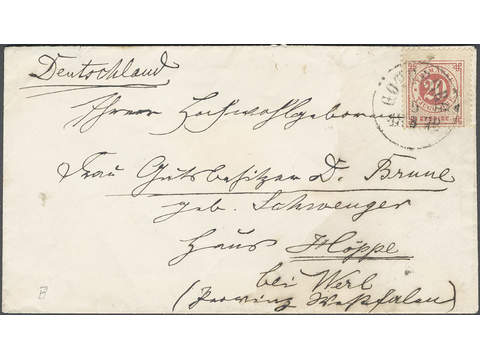 Deutschland
Ihrer Hochwohlgeboren
Frau Gutsbesitzer D. Brune
geb. Schwenger
Haus Höppe
bei Werl
(Provinz Westfalen)
20